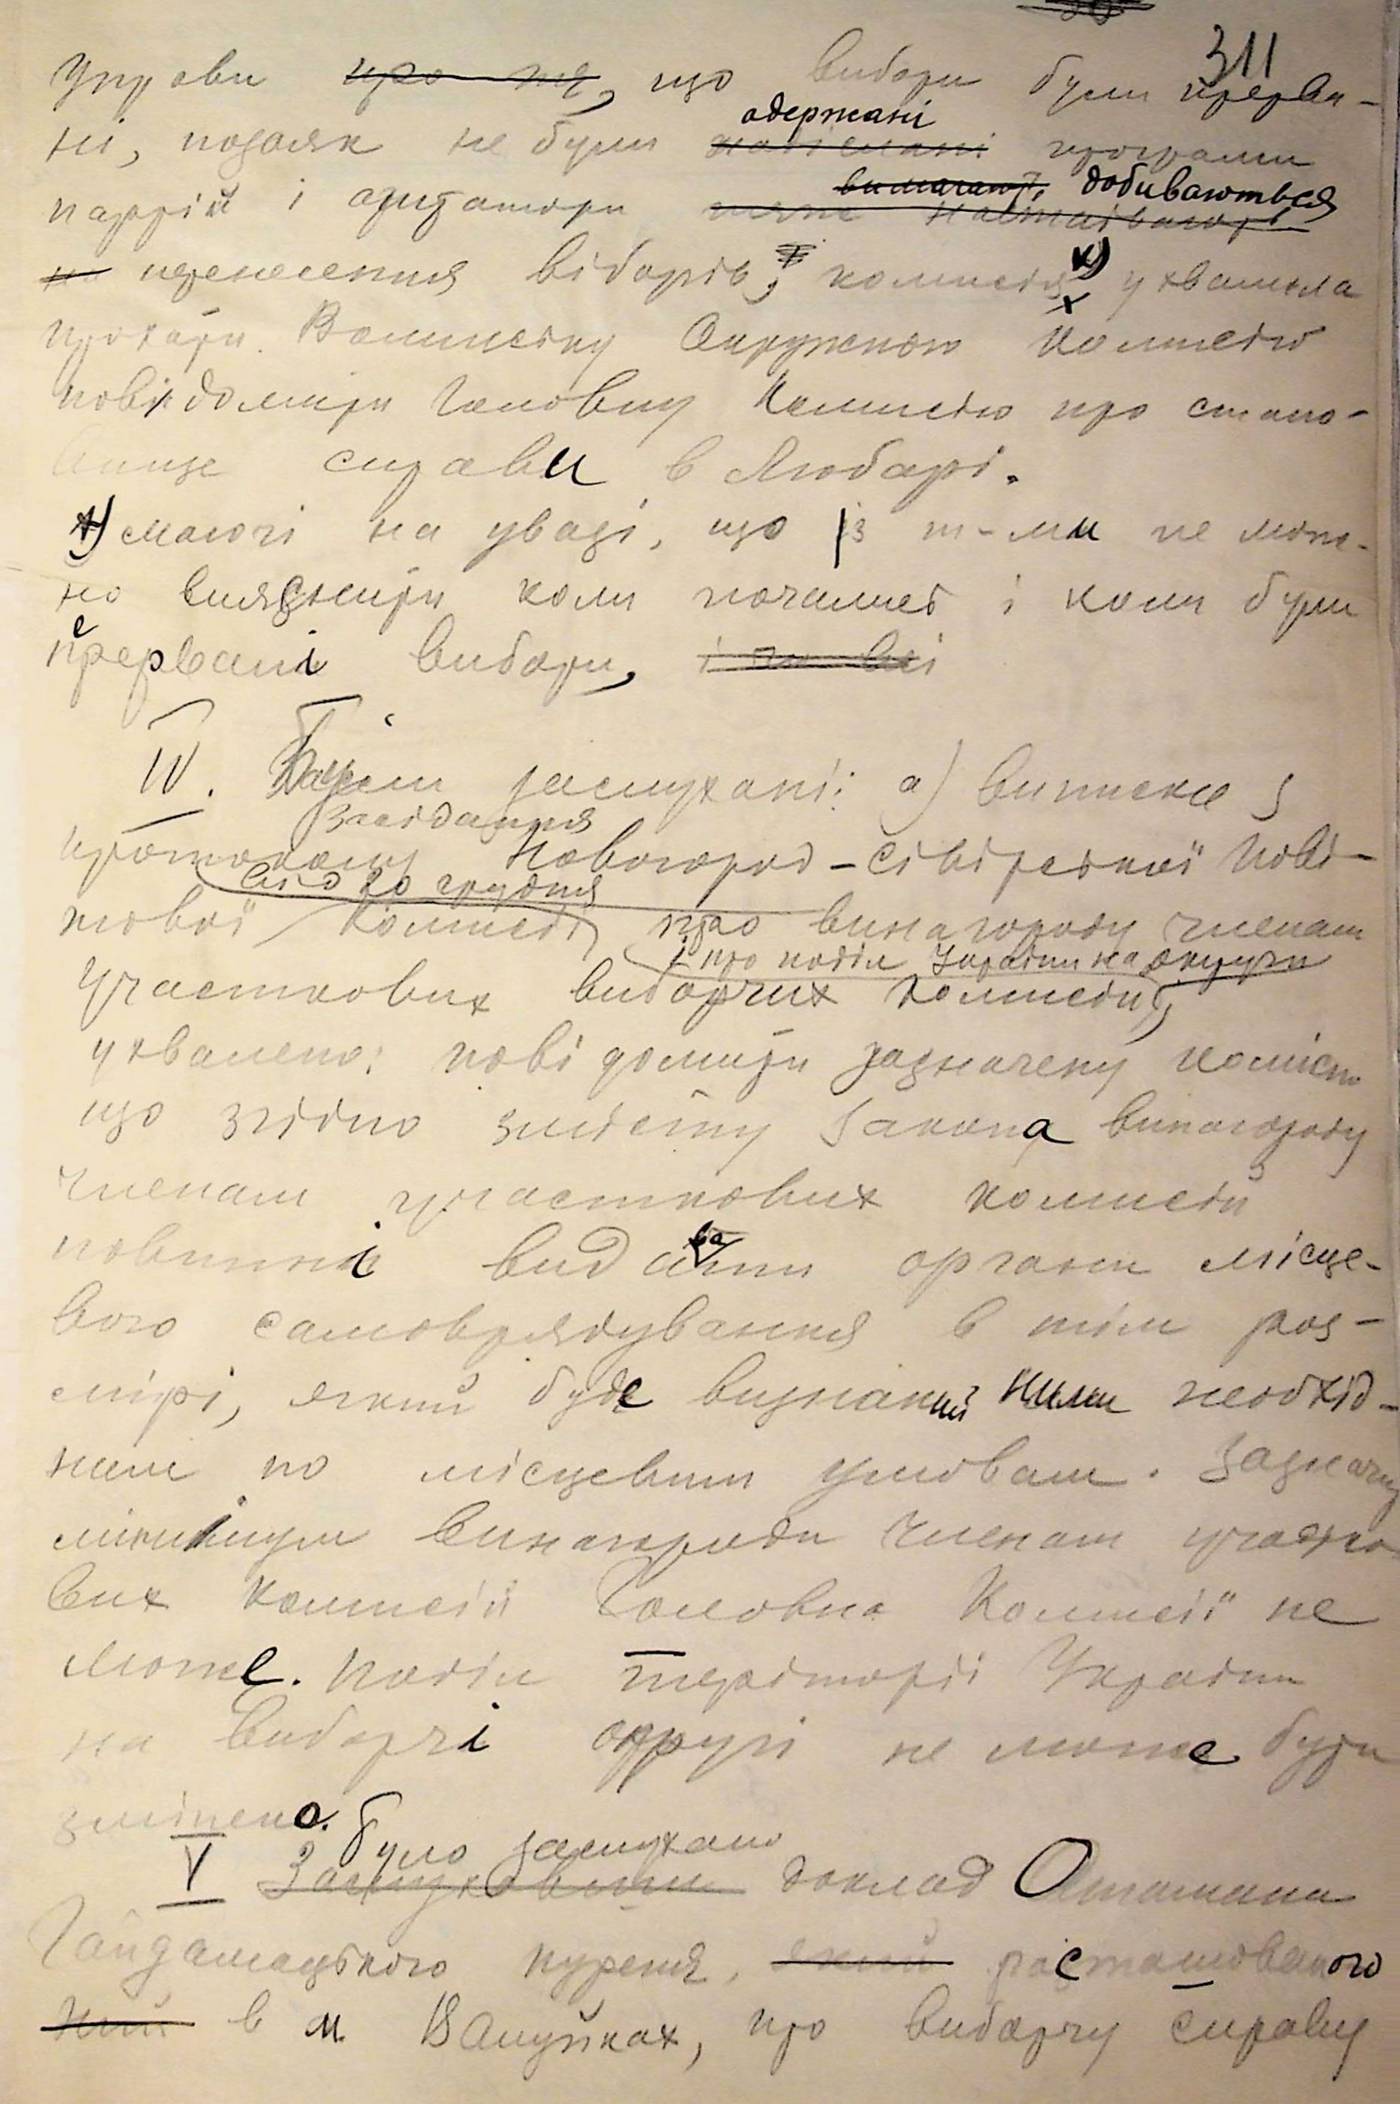 311
Управи про те, що вибори були прерва-
ні, позаяк не були надіслані одержані програми
партій і агітатори вимагают, добиваються
на перенесення віборів, комисія х) ухвалила
прохати Волинську Окружною Комисію
повідомити Головну Комисію про стано-
вище справи в Любарі.
х) маючі на увазі, що із т-ми не мож-
но вияснити коли почались і коли були
прервані вибори,
IV. Були заслухані: а) виписка з
протоколу засідання Новогород-Сівірської Пові-
від 20 грудня
тової Комисії про винагороду членам
і про поділ України на округи
участкових виборчих комисій,
ухвалено: повідомити зазначену комісію
що згідно змісту закона винагороду
членам участкових комисій
повинні видавати органи місце-
вого самоврядування в тім роз-
мірі, який буде визнаний ними необхід-
ним по місцевим умовам. Зазначу
мінімум винагороди членам участко
вих комисій Головна Комисії не
може. Поділ теріторії України
на виборчі округи не може бути
змінено.
V Було заслухано
доклад Отамана
Гайдамацького куреня, який росташованого
ний в м. Валуйках, про виборчу справу